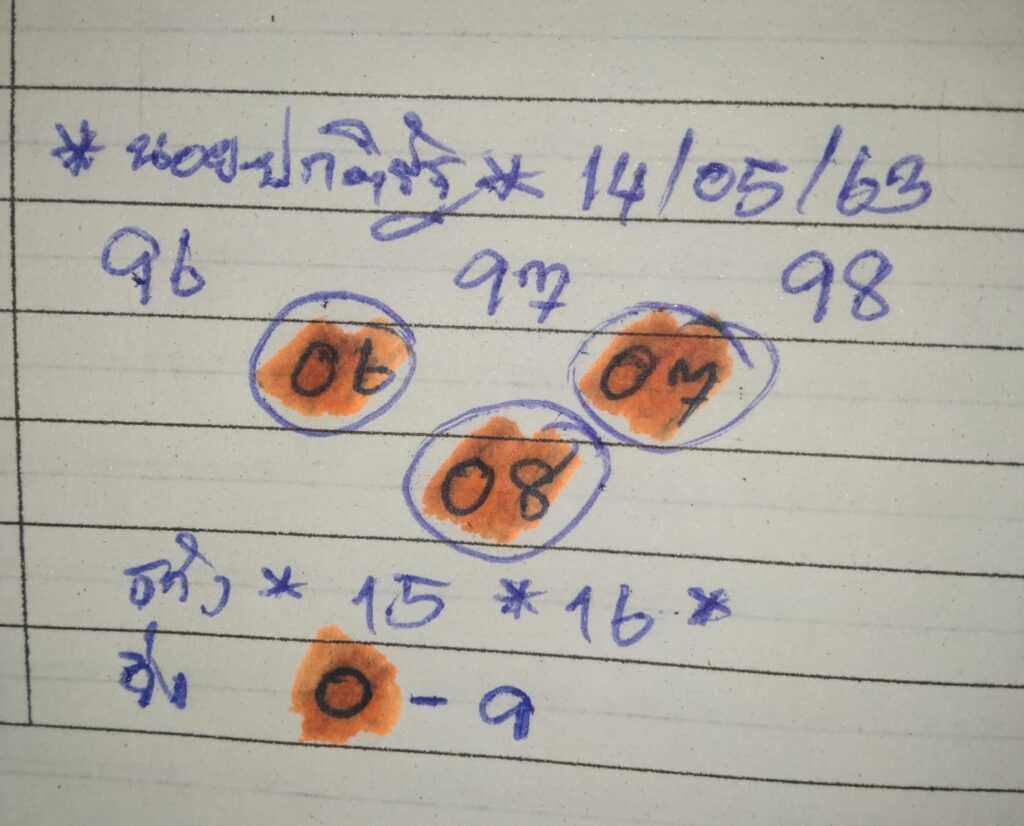 * นอยปกติ * 14/05/63
96 97 98
06 07
08
* 15 * 16 *
วิ่ง 0 - 9